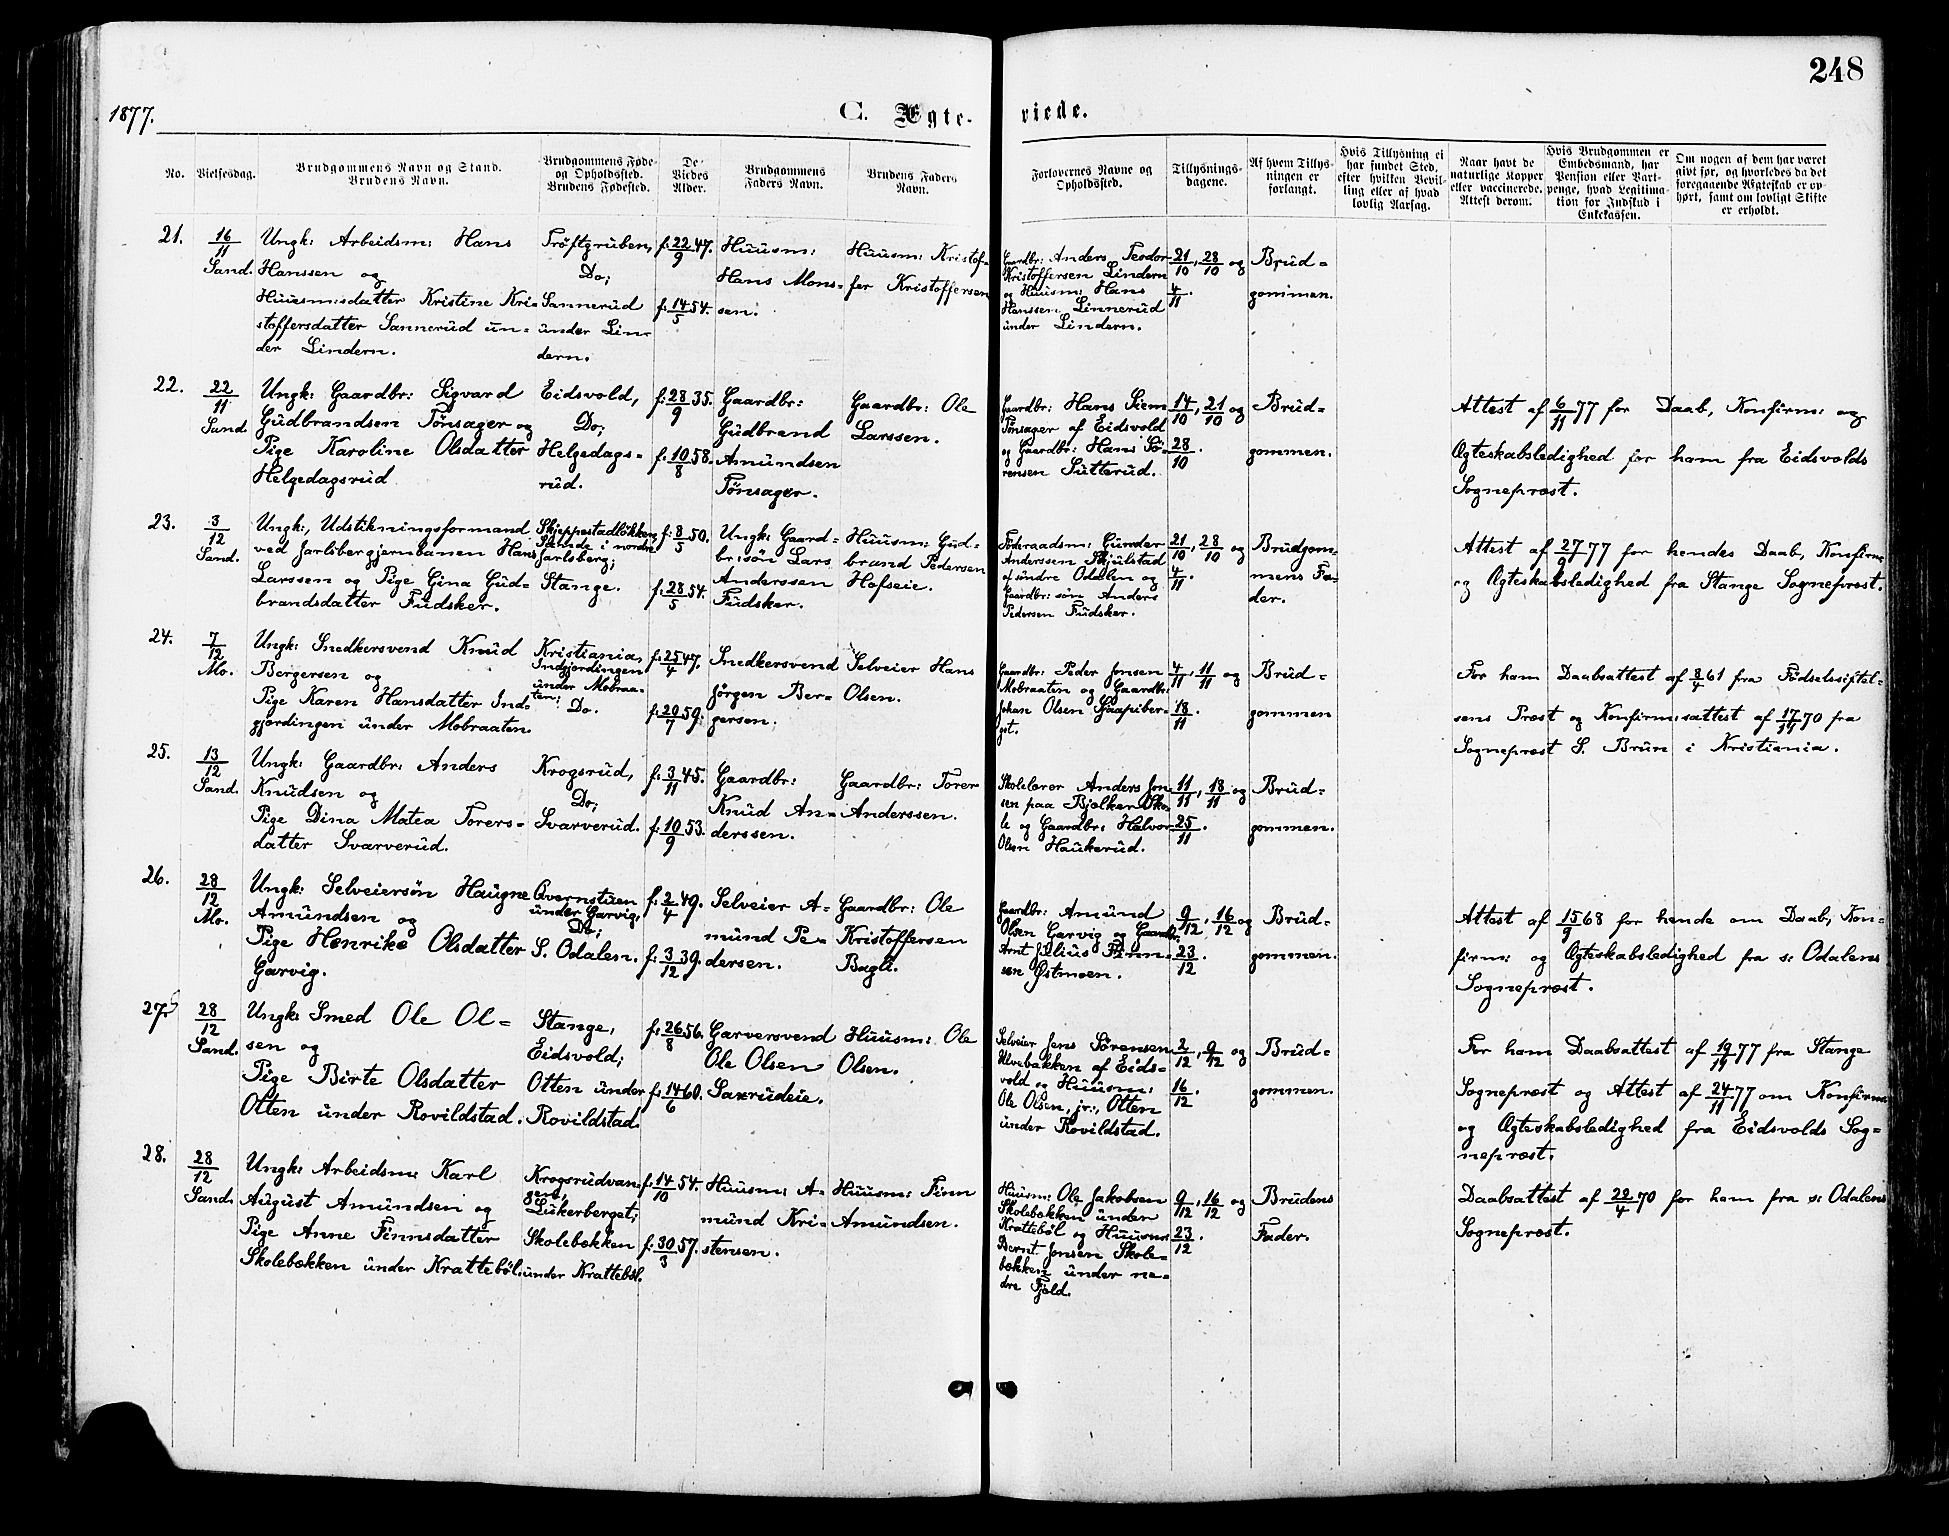 248
1877.
C. Ægte-
viede.
No.
Vielsesdag.
Brudgommens Navn og Stand.
Brudens Navn.
Brudgommens Føde-
og Opholdssted.
Brudens Fødested.
De
Viedes
Alder.
Brudgommens
Faders Navn.
Brudens Faders
Navn.
Forlovernes Navne og
Opholdssted.
Tillysnings-
dagene.
Af hvem Tillys-
ningen er
forlangt.
Hvis Tillysning ei
har fundet Sted,
efter hvilken Bevil-
ling eller af hvad
lovlig Aarsag.
Naar havt de
naturlige Kopper
eller vaccinerede.
Attest derom.
Hvis Brudgommen er
Embedsmand, har
Pension eller Vart-
penge, hvad Legitima-
tion for Indskud i
Enkekassen.
Om nogen af dem har været
givt før, og hvorledes da det
foregaaende Ægteskab er op-
hørt, samt om lovligt Skifte
er erholdt.
21.
16/11
Sand.
Ungk: Arbeidsm: Hans
Hanssen og
Huusm:datter Kristine Kri-
stoffersdatter Sannerud un-
der Lindern.
Trøftgruben,
Do;
Sannerud
under Lin-
dern.
f: 22/9 47.
f: 14/5 54.
Huusm:
Hans Mons-
sen.
Huusm: Kristof-
fer Kristoffersen
Gaardbr: Anders Teodor
Kristoffersen Lindern
og Huusm: Hans
Hanssen Linnerud
under Lindern.
21/10, 28/10 og
4/11.
Brud-
gommen.
22.
22/11
Sand.
Ungk: Gaardbr: Sigvard
Gudbrandsen Tønsager og
Pige Karoline Olsdatter
Helgedagsrud
Eidsvold,
Do;
Helgedags-
rud.
f: 28/9 35.
f: 10/8 58.
Gaardbr:
Gudbrand
Amundsen
Tønsager.
Gaardbr: Ole
Larssen.
Gaardbr: Hans Siem
Tønsager af Eidsvold
og Gaardbr: Hans Sø-
rensen Sutterud.
14/10, 21/10 og
28/10.
Brud-
gommen.
Attest af 6/11 77 for Daab, Konfirm: og
Ægteskabsledighed for ham fra Eidsvolds
Sognepræst.
23.
3/12
Sand.
Ungk:, Udstikningsformand
ved Jarlsbergjernbanen Hans
Larssen og Pige Gina Gud-
brandsdatter Fudsker.
Skjeppestadløkken,
Sande i nordre
Jarlsberg;
Stange.
f: 8/5 50.
f: 28/5 54.
Ungk: Gaard-
br:søn Lars
Anderssen
Fudsker.
Huusm: Gud-
brand Pedersen
Hofseie.
Føderaadsm: Gunder
Anderssen Skjulstad
af søndre Odalen og
Gaardbr:søn Anders
Pedersen Fudsker.
21/10, 28/10 og
4/11.
Brudgom-
mens Fa-
der.
Attest af 27/9 77 for hendes Daab, Konfirm:
og Ægteskabsledighed fra Stange Sognepræst.
24.
7/12
Mo.
Ungk: Snedkersvend Knud
Bergersen og
Pige Karen Hansdatter Ind-
gjordingen under Mobraaten.
Kristiania,
Indgjordingen
under Mobraa-
ten;
Do.
f: 25/4 47.
f: 20/7 59.
Snedkersvend
Jørgen Ber-
gersen.
Selveier Hans
Olsen.
Gaardbr: Peder Jonsen
Mobraaten og Gaardbr:
Johan Olsen Gaapiber-
get.
4/11, 11/11 og
18/11.
Brud-
gommen
For ham Daabsattest af 8/4 61 fra Fødselsstiftel-
sens Præst og Konfirm:sattest af 17/11 70 fra
Sognepræst S. Brun i Kristiania.
25.
13/12
Sand.
Ungk: Gaardbr: Anders
Knudsen og
Pige Dina Matea Torers-
datter Svarverud.
Krogsrud,
Do;
Svarverud.
f: 3/11 45.
f: 10/9 53.
Gaardbr:
Knud An-
derssen.
Gaardbr: Torer
Anderssen.
Skolelærer Anders Jon-
sen paa Bjelker Sko-
le og Gaardbr: Halvor
Olsen Haukerud.
11/11, 18/11 og
25/11.
Brud-
gommen.
26.
28/12
Mo.
Ungk: Selveiersøn Haugne
Amundsen og
Pige Henrike Olsdatter
Garvig.
Qvernstuen
under Garvig,
Do;
S. Odalen.
f: 2/4 49.
f: 3/12 39.
Selveier A-
mund Pe-
dersen.
Gaardbr: Ole
Kristoffersen
Bagli.
Gaardbr: Amund
Olsen Garvig og Gaardbr:
Arnt Julius Finn-
sen Østmoen.
9/12, 16/12 og
23/12
Brud-
gommen.
Attest af 15/9 68 for hende om Daab, Kon-
firm: og Ægteskabsledighed fra s: Odalens
Sognepræst.
27.
28/12
Sand.
Ungk: Smed Ole Ol-
sen og
Pige Birte Olsdatter
Otten under Rovildstad.
Stange,
Eidsvold;
Otten under
Rovildstad.
f: 26/8 56.
f: 14/6 60.
Garversvend
Ole Olsen
Saxrudeie.
Huusm: Ole
Olsen.
Selveier Jens Sørensen
Ulvebakken af Eids-
vold og Huusm:
Ole Olsen, jr:, Otten
under Rovildstad.
2/12, 9/12 og
16/12.
Brud-
gommen.
For ham Daabsattest af 19/11 77 fra Stange
Sognepræst og Attest af 24/11 77 om Konfirm:
og Ægteskabsledighed fra Eidsvolds Sog-
nepræst.
28.
28/12
Sand.
Ungk: Arbeidsm: Karl
August Amundsen og
Pige Anne Finnsdatter
Skolebækken under Krattebøl.
Krogsrudvan-
gen,
Lukerberget;
Skolebækken
under Krattebøl.
f: 14/10 54.
f: 30/3 57.
Huusm: A-
mund Kri-
stensen.
Huusm: Finn
Amundsen.
Huusm: Ole Jakobsen
Skolebækken under
Krattebøl og Huusm:
Bernt Jonsen Skole-
bækken under ne-
dre Fjeld.
9/12, 16/12 og
23/12.
Brudens
Fader.
Daabsattest af 22/4 70 for ham fra s: Odalens
Sognepræst.